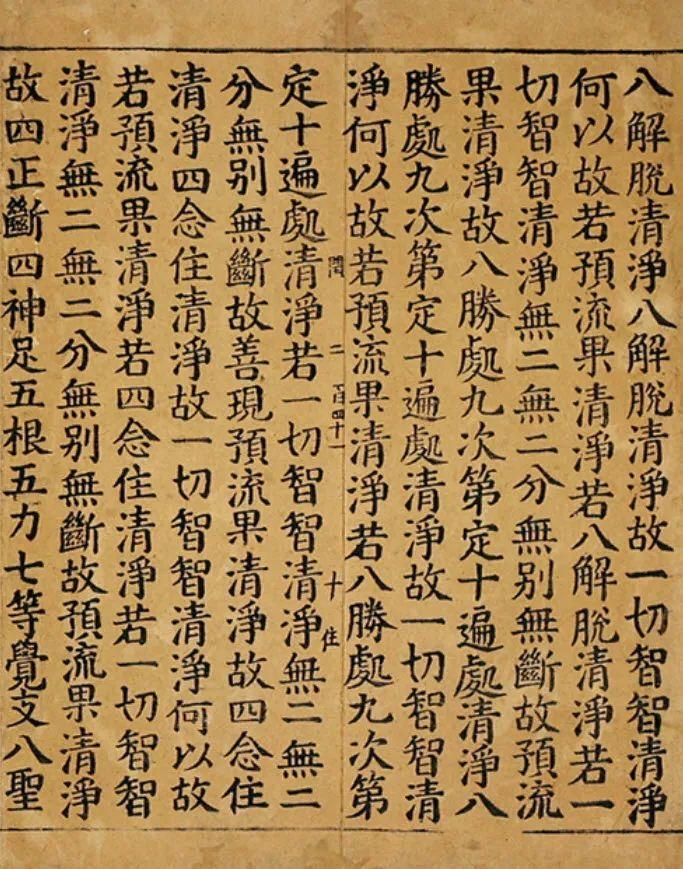 八解脫清淨八解脫清淨故一切智智清淨
何以故若預流果清淨若八解脫清淨若一
切智智清淨無二無二分無别無斷故預流
果清淨故八勝處九次第定十遍處清淨八
勝處九次第定十遍處清淨故一切智智清
淨何以故若預流果清淨若八勝處九次第
閏 二百四十一 十 住
定十遍處清淨若一切智智清淨無二無二
分無别無斷故善現預流果清淨故四念住
清淨四念住清淨故一切智智清淨何以故
若預流果清淨若四念住清淨若一切智智
清淨無二無二分無别無斷故預流果清淨
故四正斷四神足五根五力七等覺支八聖